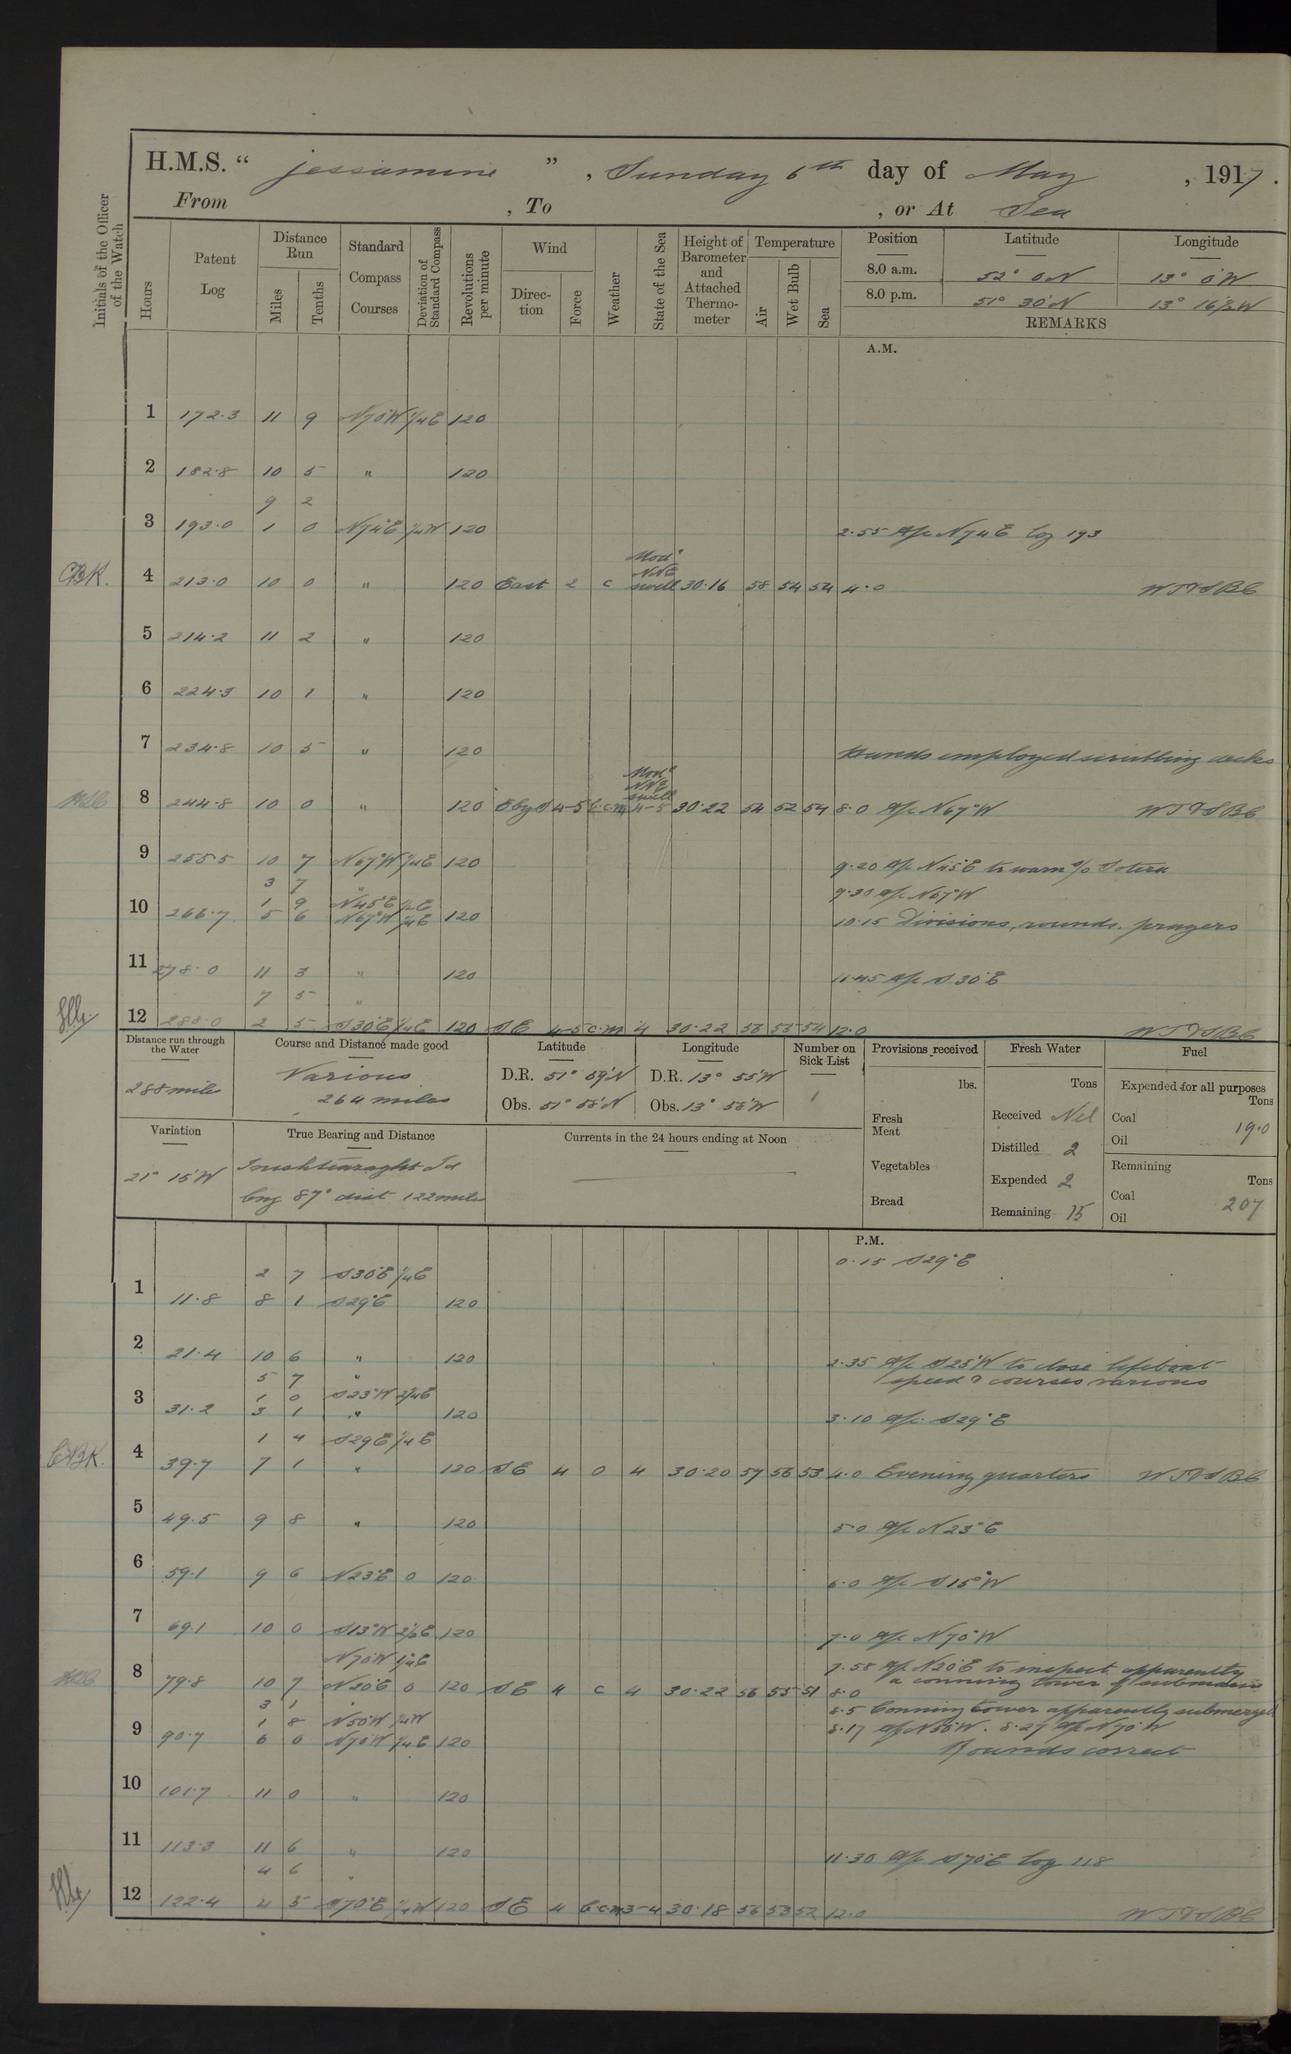 H.M.S. “ Jessamine ” , Sunday 6th day of May , 1917 .
From , To , or At Sea
Initials of the Officer of the Watch
Hours
Patent Log
Distance Run
Miles
Tenths
Standard Compass Courses
Deviation of Standard Compass
Revolutions per minute
Wind
Direction
Force
Weather
State of the Sea
Height of Barometer and Attached Thermometer
Temperature
Air
Wet Bulb
Sea
Position Latitude Longitude
8.0 a.m. 52° 0'N 13° 0'W
8.0 p.m. 51° 30'N 13° 16½'W
REMARKS
A.M.
1 172.3 11 9 N70°W ¼E 120
2 182.8 10 5 " 120
9 2
3 193.0 1 0 N74°E ¼W 120 2.55 A/c N74E log 193
Mod°
NNE
CBK. 4 213.0 10 0 " 120 East 2 c swell 30.16 58 54 54 4.0 WT&SBC
5 214.2 11 2 " 120
6 224.3 10 1 " 120
7 234.8 10 5 " 120 Hands employed scrubbing decks
Mod°
NNE
swell
8 244.8 10 0 " 120 4-5 4-5 30.22 54 52 54 8.0 A/c N67°W WT&SBC
9 255.5 10 7 N67°W ¼E 120 9.20 A/c N45°E to warn S/S Sotera
3 7 " 9.30 A/c N67°W
1 9 N45E
10 266.7 5 6 N67°W ¼E 120 10.15 Divisions, rounds. prayers
11 278.0 11 3 " 120 11.45 A/c S30°E
7 5 "
12 288.0 2 5 S30°E ¼E 120 SE 4-5 c.m 4 30.22 56 55 54 12.0 WT&SBC
Distance run through the Water
288 mile
Course and Distance made good
Various
264 miles
Latitude
D.R. 51° 59'N
Obs. 51° 58'N
Longitude
D.R. 13° 55'W
Obs. 13° 58'W
Number on Sick List
1
Provisions received
lbs.
Fresh Meat
Vegetables
Bread
Fresh Water
Tons
Received Nil
Distilled 2
Expended 2
Remaining 15
Fuel
Expended for all purposes
Tons
Coal 19.0
Oil
Remaining
Tons
Coal 207
Oil
Variation
21° 15'W
True Bearing and Distance
Inishtearaght Id
brg 87° dist 122 miles
Currents in the 24 hours ending at Noon
P.M.
0.15 S29°E
2 7 S30°E ¼E
1 11.8 8 1 S29°E 120
2 21.4 10 6 " 120 2.35 A/c S25°W to close lifeboat
5 7 " speed & courses various
1 0 S23°W ¾E
3 31.2 3 1 " 120 3.10 A/c S29°E
1 4 S29E ¼E
CBK. 4 39.7 7 1 " 120 SE 4 0 4 30.20 57 56 53 4.0 Evening quarters WT&SBC
5 49.5 9 8 " 120 5.0 A/c N23°E
6 59.1 9 6 N23°E 0 120 6.0 A/c S15°W
7 69.1 10 0 S13°W 120 7.0 A/c N70°W
N70W ¼E 7.58 A/c N20°E to inspect apparently
a conning tower of submarine
8 79.8 10 7 N20°E 0 120 SE 4 c 4 30.22 56 55 51 8.0
3 1 " 8.5 Conning tower apparently submerged
1 8 N50°W ¼W 8.17 A/c N50°W. 8.27 A/c N70°W
9 90.7 6 0 N70W ¼E 120
Rounds correct
10 101.7 11 0 " 120
11 113.3 11 6 " 120 11.30 A/c S70°E log 118
4 6 "
12 122.4 4 5 S70°E ¼W 120 SE 4 bcm 3-4 30.18 56 53 52 12.0 WT&SBC